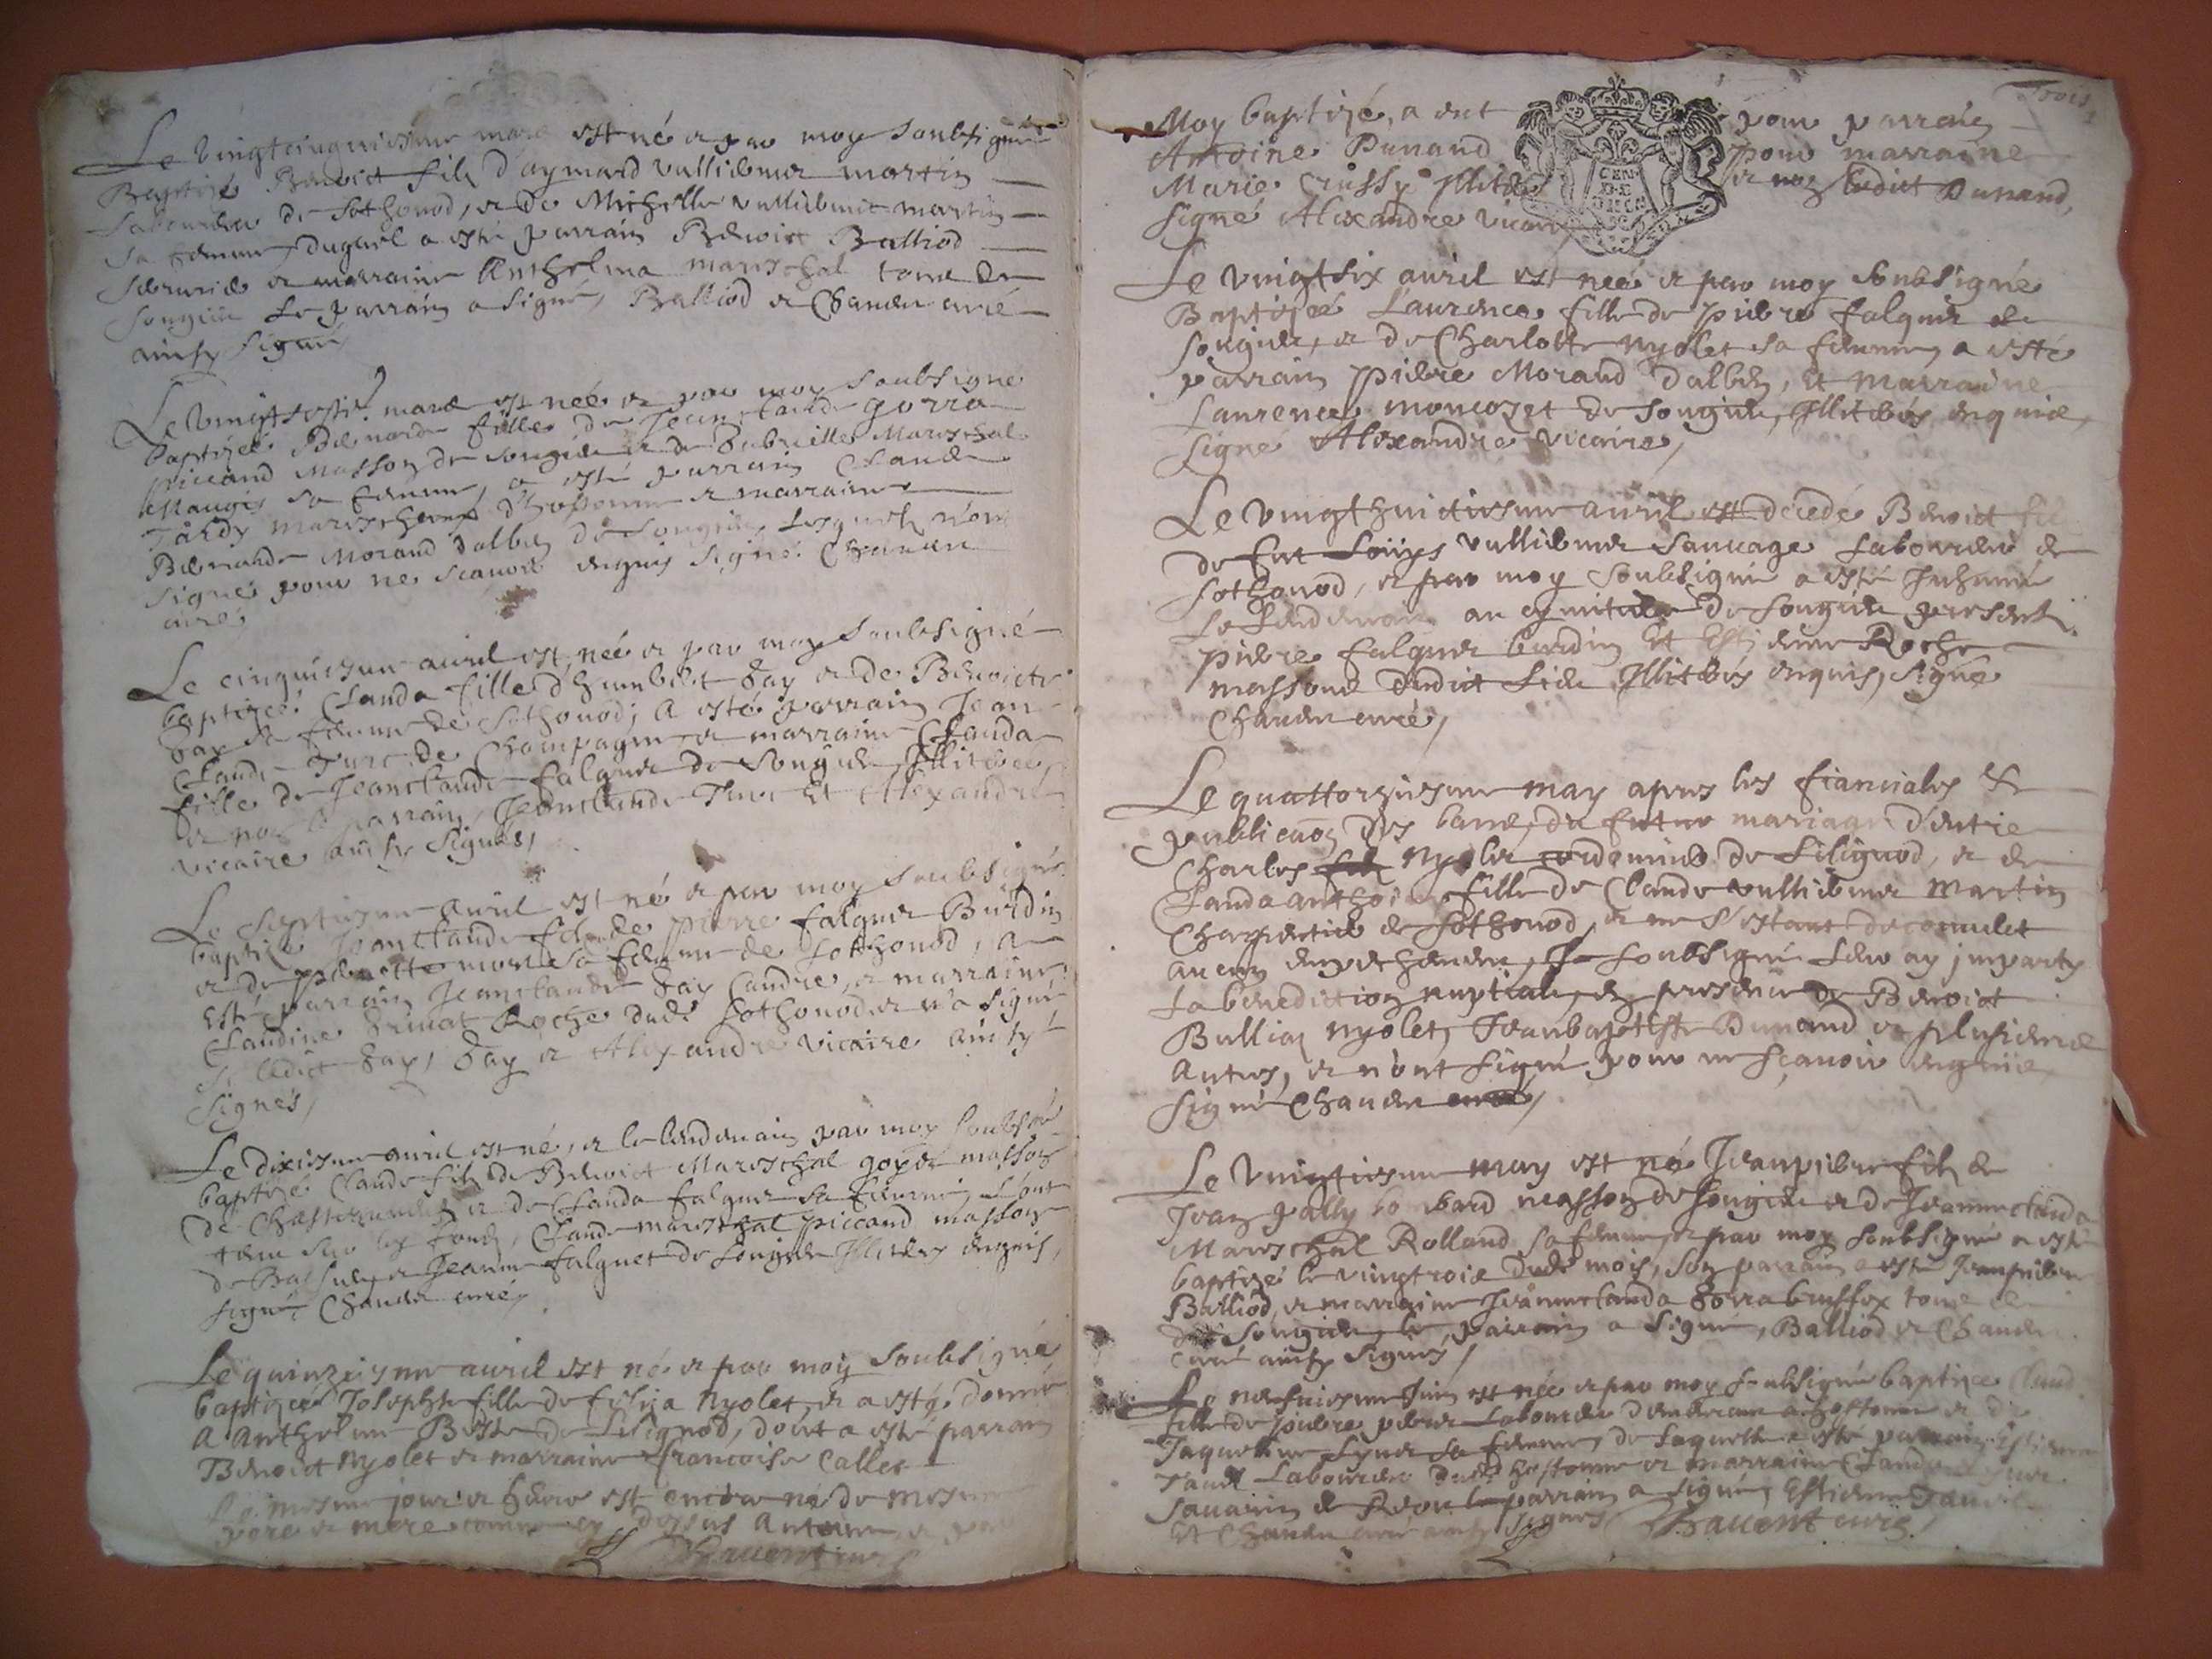 Le vingtcinquiesme mars est né et par moy soubsigné
Baptizé Benoict filz d'aymard vulliemer martin
Laboureur de Sothonod, et de Michelle vulliemer martin
sa femme, duquel a esté parrain Benoict Balliod
et marraine Anthelma mareschal tous de
songieu Le parrain a signé, Balliod et Chauen curé
ainsy signé
Le vingt mars est née et par moy soubsigné
baptizée Bernarde fille de Jean claude gorra
piccand Masson de songieu et de Gabrielle Mareschal
Maugis sa femme, a esté parrain Claude
Tardy mareschal d'hostonne et marraine
Bernarde Morand dalbin de songieu, Lesquels n'ont
signé pour ne sçauoir enquis signé Chauen
curé,
Le cinquiesme auril est née et par moy soubsigné
baptizée Clauda fille d'humbert Gay et de Benoicte
Gay sa femme de Sothonod; A esté parrain Jean
Claude Turc de Champagne et marraine Clauda
fille de Jeanclaude falquet de songieu, Illiterée,
et non le parrain, Jeanclaude Turc Et Alexandre
vicaire ainsy signés,
Le septiesme auril est né et par moy soubsigné
baptizé Jeanclaude filz de pierre falquet Burdin
et de pernette morel sa femme de Sothonod, a
esté parrain Jeanclaude Gay Candre, et marraine
Claudine Roche dudt Sothonod et n'a signé
si ledict Gay, Gay et Alexandre vicaire ainsy
signés,
Le dixiesme auril est né, et le lendemain par moy soubsné
baptizé Claude filz de Benoict Mareschal goyet masson
de et de Clauda falquet sa femme, L'ont
tenu sur les fonds, Claude mareschal piccand masson
de et Jeanne falquet de songieu Illiterés enquis,
signé Chauen curé,
Le quinziesme auril est né et par moy soubsigné
baptizée Josephte fille de Nyolet, et a esté donné
A Anthelme de Lilignod, dont a esté parrain
Benoict Nyolet et marraine francoise Callet
Le mesme jour et heure est encore né de mesme
pere et mere comme cy dessus Antoine, et par
Chauent curé
Moy baptizé, a eut pour parrain
Antoine Dunand pour marraine
Marie Crussy Illiterée et non ledict Dunand,
signé Alexandre vicaire
Le vingtsix auril est neé et par moy soubsigné
Baptizeé Laurence fille de pierre falquet de
songieu, et de Charlotte nyolet sa femme, a esté
parrain pierre Morand dalbin, Et marraine
Laurence moncozet de songieu, Illiterés enquis,
signé Alexandre vicaire,
Le vingthuictiesme auril est decedé Benoict filz
de feut Loüys vulliemer sauuage Laboureur de
Sothonod, et par moy soubsigné a esté Inhumé
Le Lendemain au cymitiere de songieu presents
pierre falquet burdin Et Estienne Roche
massons dudict Lieu Illiterés enquis, signé
Chauen curé,
Le quattorziesme may apres les fiancailes &
publicaon des bans, du futur mariage d'entre
Charles Nyolet cordonnier de Lilignod, et de
Clauda anthoine fille de Claude vulliemer Martin
Charpentier de Sothonod, et ne s'estant decouuert
aucun empechement, Je soubsigné Leur ay jmparty
La benediction nuptiale, en presence de Benoict
Bullion nyolet, Jeanbaptiste Dunand et plusieurs
Autres, et n'ont signé pour ne sçauoir enquis,
signé Chauen curé,
Le vingtiesme may est né Jeanpierre filz de
Jean pally masson de songieu et de Jeanneclauda
Mareschal Rolland sa femme, et par moy soubsigné a esté
baptizé le vingtrois dudt mois, son parrain a esté Jeanpierre
Balliod, et marraine Jeanneclauda Gorra tous de
songieu, le parrain a signé, Balliod et Chauen
curé ainsy signés,
Le neufuiesme Juin est née et par moy soubsigné baptizée Claud
fille de Laboureur d'hostonne et de
Jaquemine sa femme, de laquelle a esté parrain Estienne
Laboureur dudt hostonne et marraine Clauda
sauarin de le parrain a signé, Estienne
Et Chauen curé ainsy signés, Chauent curé,